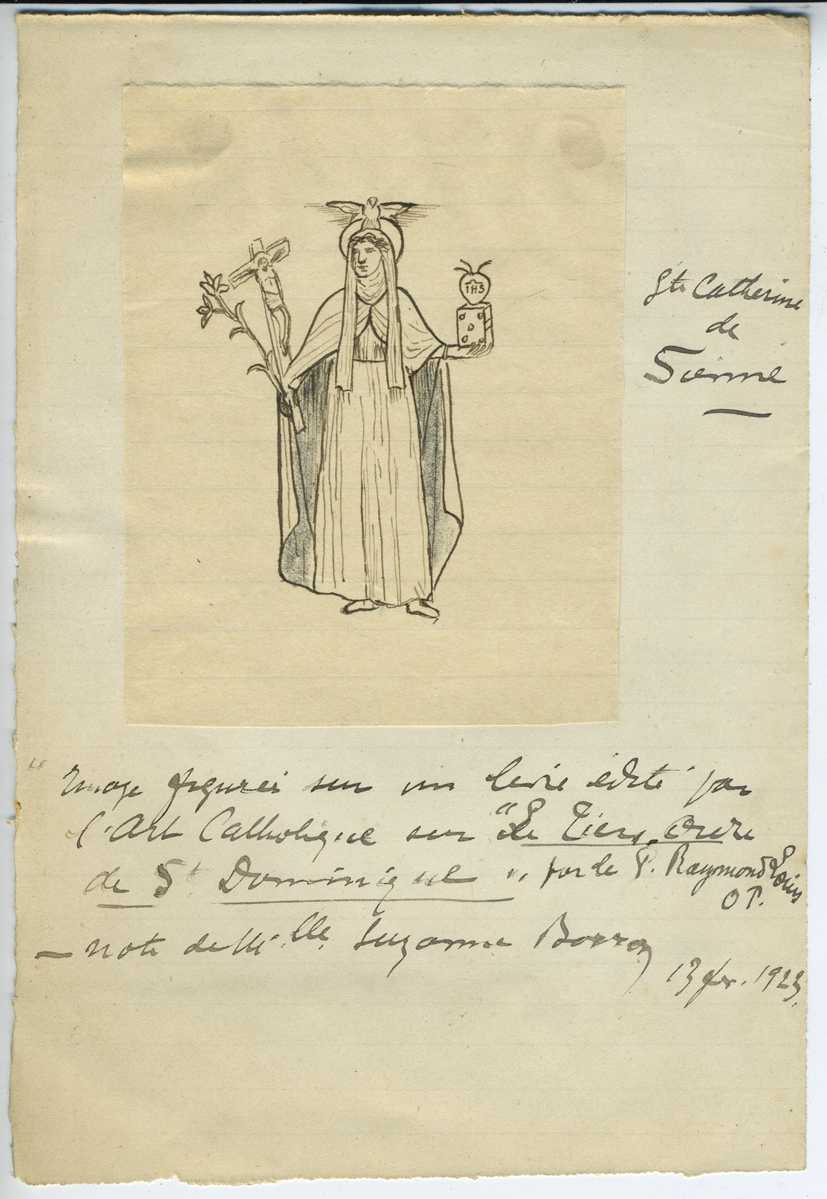 Ste Catherine
de
Sienne
IHS
"Image figurei sur un livre édité par
l'Art Catholique sur "Le Tiers Ordre
de St Dominique", par le P. Raymond Louis
O P.
— note de Mlle Suzanne
13 fev. 1923.